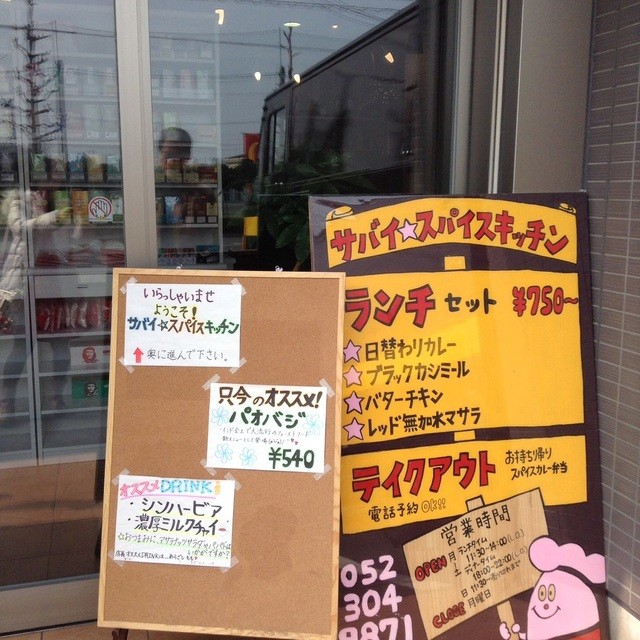 いらっしゃいませ
ようこそ!
サバイ☆スパイスキッチン
↑奥に進んで下さい。
只今のオススメ!
パオバジ
¥540
オススメDRINK
シンハービア
濃厚ミルクチャイ
サバイ☆スパイスキッチン
ランチセット ¥750~
☆日替わりカレー
☆ブラックカシミール
☆バターチキン
☆レッド無加水マサラ
テイクアウト
お持ち帰り
スパイスカレー弁当
電話予約OK!!
営業時間
OPEN
ランチタイム
11:30-14:00(L.O.)
ディナータイム
18:00-22:00(L.O.)
日 11:30-
CLOSE 月曜日
052
304
8871